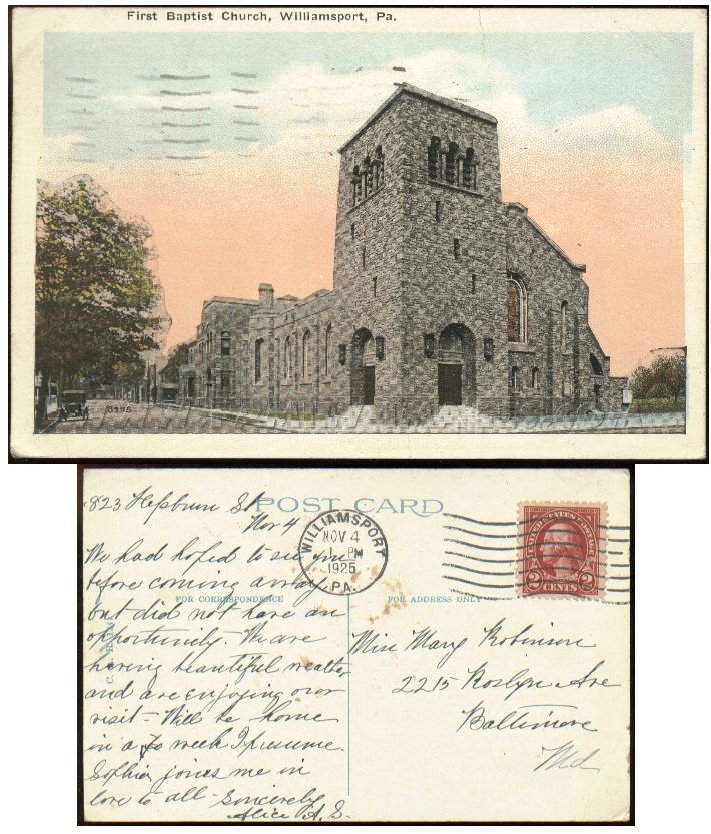 First Baptist Church, Williamsport, Pa.
8195
POST CARD
823 Hepburn St
Nov 4
We had hoped to see you
before coming away
but did not have an
opportunity. We are
having beautiful weather
and are enjoying our
visit - Will be home
in a week I presume.
Sophia joins me in
love to all - Sincerely
Alice A. S.
FOR CORRESPONDENCE
WILLIAMSPORT
NOV 4
1 PM
1925
PA.
FOR ADDRESS ONLY
UNITED STATES POSTAGE
2 CENTS 2
Miss Mary Robinson
2215 Roslyn Ave
Baltimore
Md